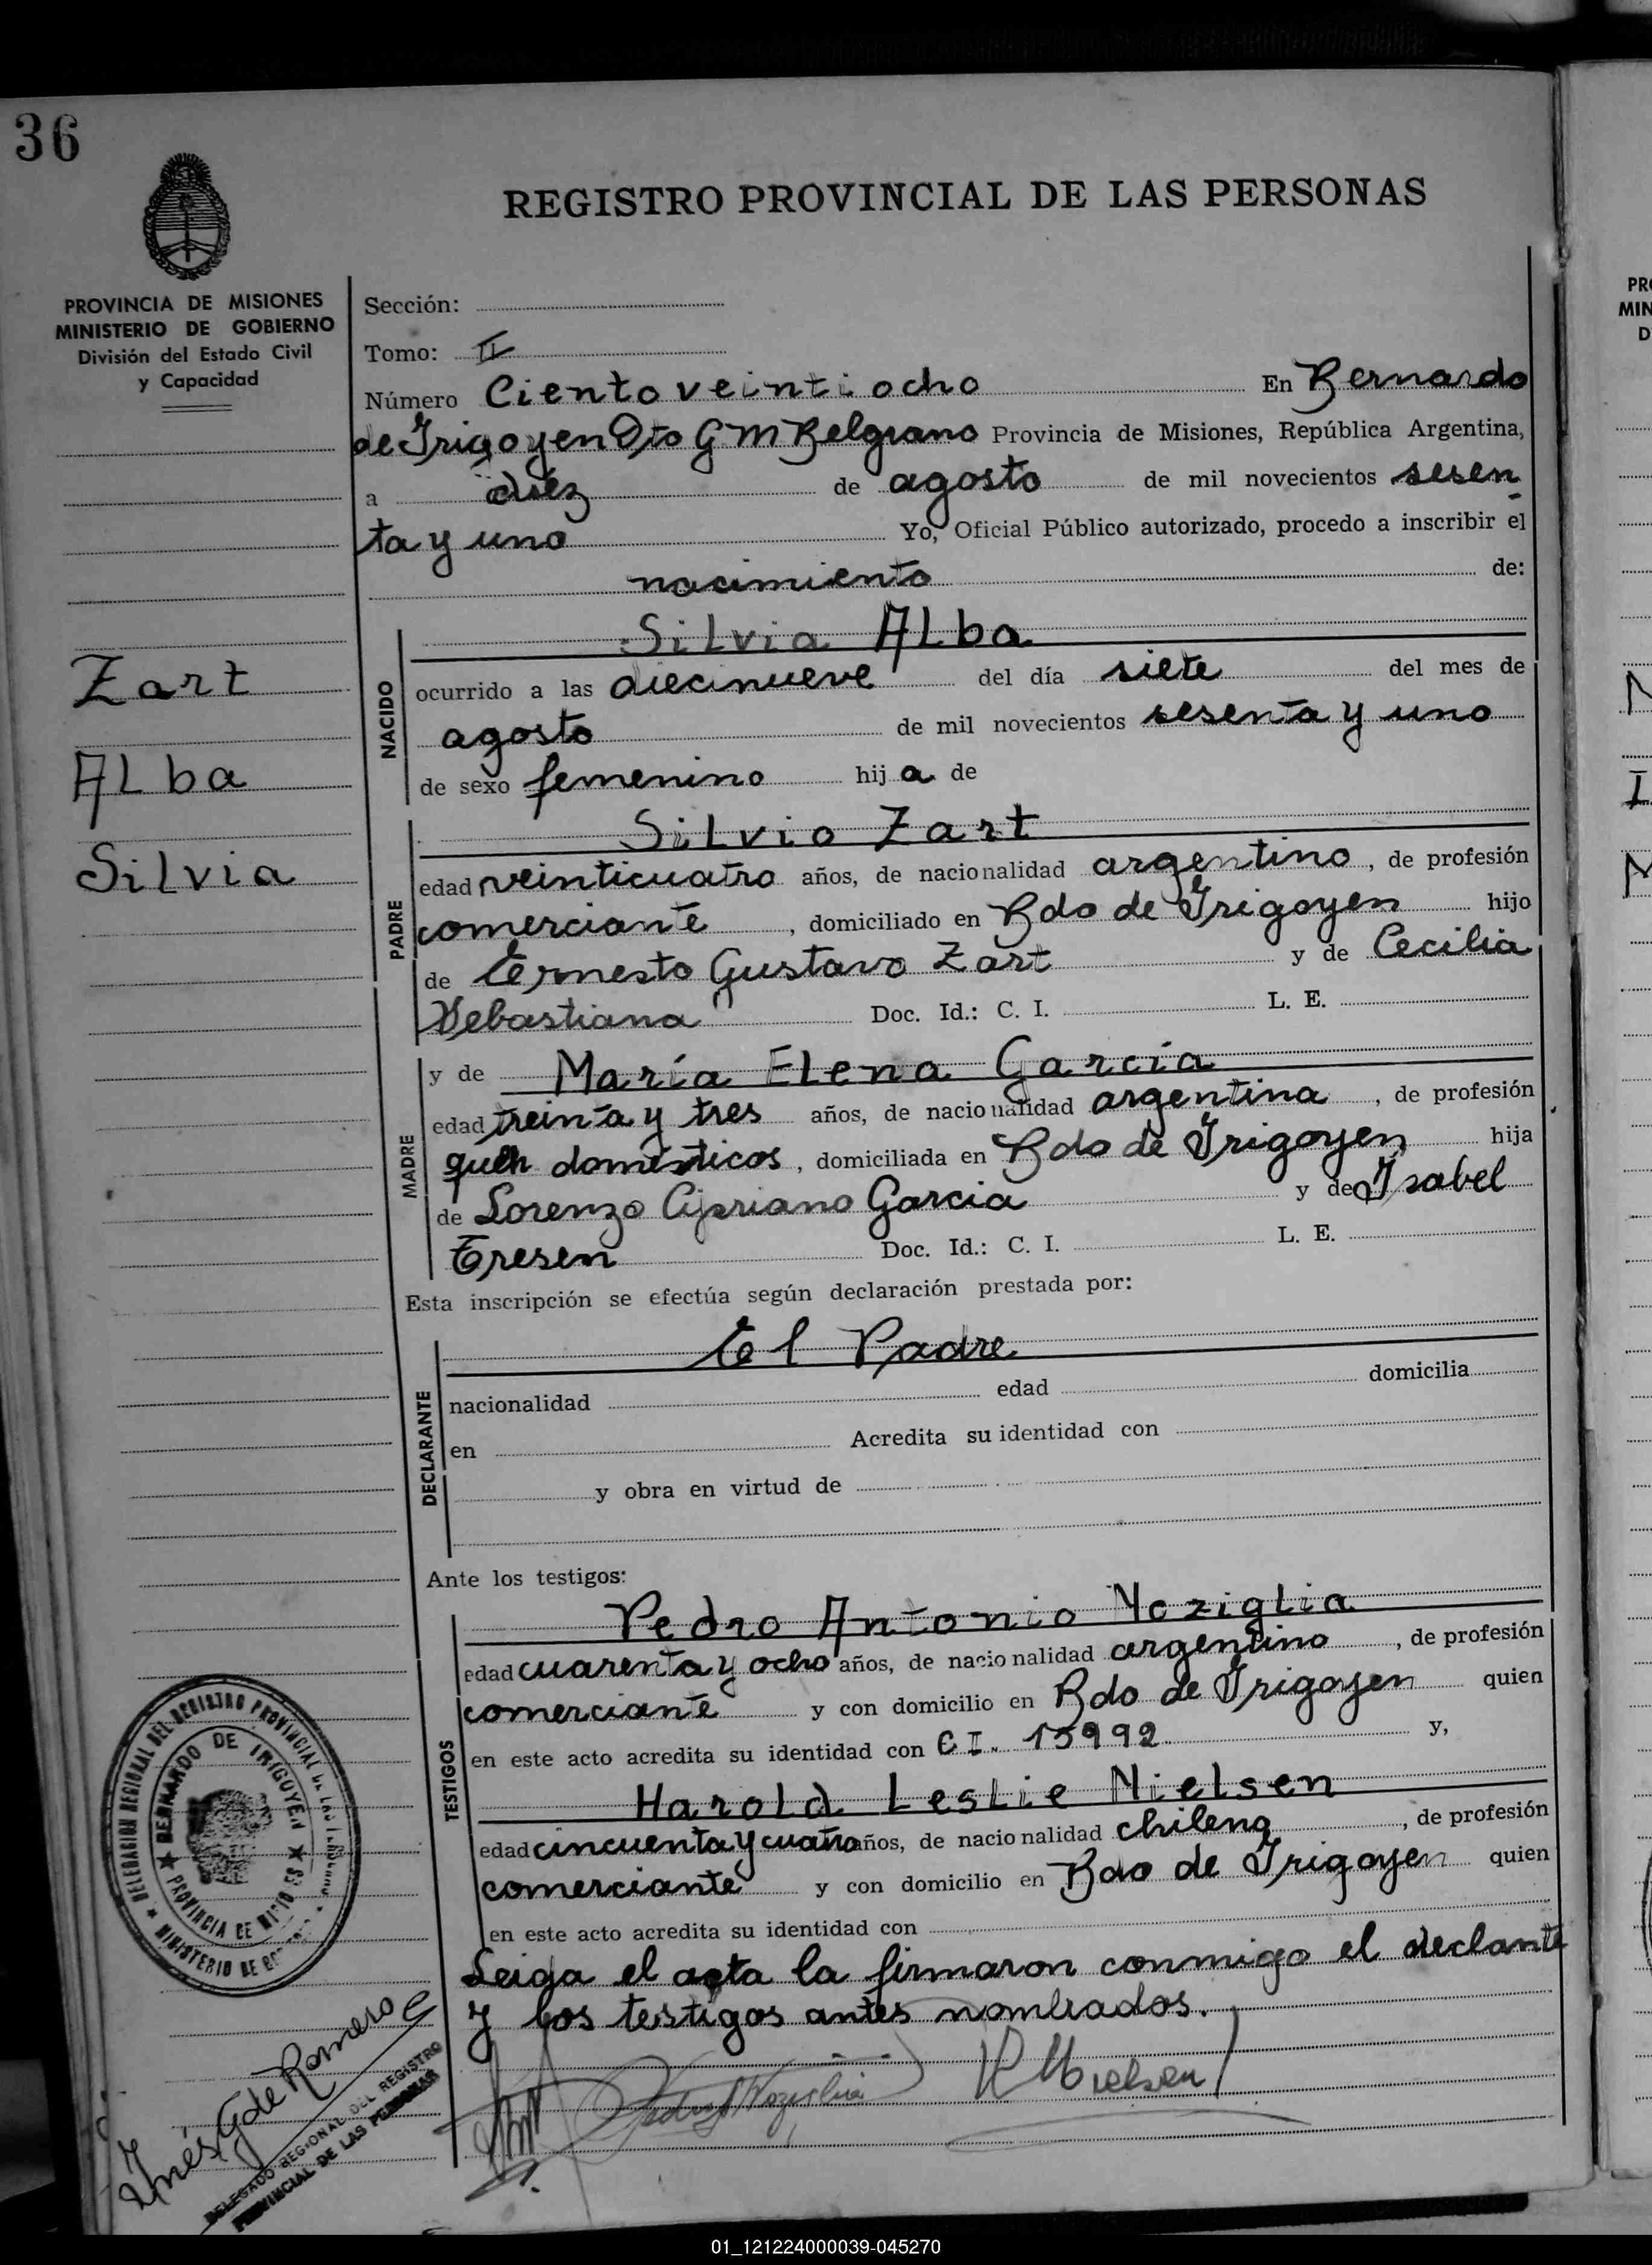 36
REGISTRO PROVINCIAL DE LAS PERSONAS
PROVINCIA DE MISIONES
MINISTERIO DE GOBIERNO
División del Estado Civil
y Capacidad
Zart
Alba
Silvia
Sección:
Tomo: II
Número Ciento veinti ocho En Bernardo
de Irigoyen Dto G M Belgrano Provincia de Misiones, República Argentina,
a diéz de agosto de mil novecientos sesen
ta y uno Yo, Oficial Público autorizado, procedo a inscribir el
nacimiento de:
Silvia Alba
NACIDO
ocurrido a las diecinueve del día siete del mes de
agosto de mil novecientos sesenta y uno
de sexo femenino hij a de
Silvio Zart
PADRE
edad veinticuatro años, de nacionalidad argentino, de profesión
comerciante, domiciliado en Bdo de Irigoyen hijo
de Ernesto Gustavo Zart y de Cecilia
Sebastiana Doc. Id.: C. I. L. E.
y de María Elena García
MADRE
edad treinta y tres años, de nacionalidad argentina, de profesión
queh domésticos, domiciliada en Bdo de Irigoyen hija
de Lorenzo Cipriano Garcia y de Isabel
Tresen Doc. Id.: C. I. L. E.
Esta inscripción se efectúa según declaración prestada por:
El Padre
DECLARANTE
nacionalidad edad domicilia
en Acredita su identidad con
y obra en virtud de
Ante los testigos:
Pedro Antonio Noziglia
TESTIGOS
edad cuarenta y ocho años, de nacionalidad argentino, de profesión
comerciante y con domicilio en Bdo de Irigoyen quien
en este acto acredita su identidad con C I. 15992 y,
Harold Leslie Nielsen
edad cincuenta y cuatro años, de nacionalidad chileno, de profesión
comerciante y con domicilio en Bdo de Irigoyen quien
en este acto acredita su identidad con
Leida el acta la firmaron conmigo el declante
y los testigos antes nombrados.
Pedro A Noziglia
H Nielsen
DELEGACION REGIONAL DEL REGISTRO PROVINCIAL DE LAS PERSONAS
MINISTERIO DE
BERNARDO DE IRIGOYEN
PROVINCIA DE MISIONES
Inés G de Romero
DELEGADO REGIONAL DEL REGISTRO
PROVINCIAL DE LAS PERSONAS
01_121224000039-045270